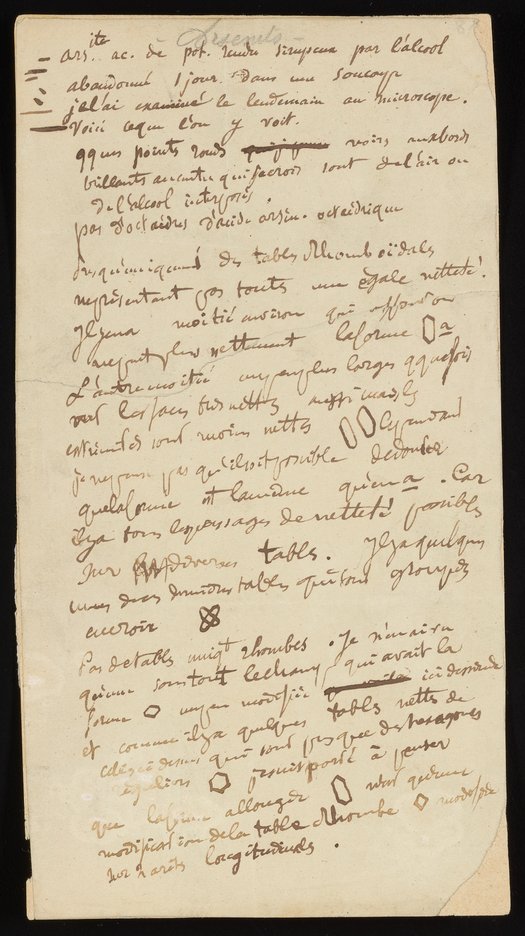 Arsenits
arsite ac. de pot. rendu sirupeux par l'alcool
abandonné 1 jour. Dans une soucoupe
je l'ai examiné le lendemain au microscope.
Voici ce que l'on y voit.
qques points ronds noirs aux bords
brillants au centre que je crois sont de l'air ou
de l'alcool interposés.
pas d'octaèdres d'acide arsen. octaédrique
des tables Rhomboïdales
représentant pas toutes une égale netteté.
Il y en a moitié environ qui
nettement la forme a
L'autre moitié un peu plus larges qquefois
ont les faces très nettes mais les
extrémités sont moins nettes Cependant
je ne pense pas qu'il soit possible de douter
que la forme est la même qu'en a. Car
il y a tous les passages de netteté possibles
sur les diverses tables. Il y a quelques
unes de ces dernières tables qui sont groupées
en croix
Pas de tables uniqt rhombes. Je n'en ai vu
qu'une sur tout le champ qui avait la
forme un peu modifiée ici dessinée
et comme il y a quelques tables nettes de
celles ci dessus qui sont presque des hexagones
réguliers je suis porté à penser
que la forme allongée n'est qu'une
modification de la table Rhombe modifiée
sur 2 arêts longitudinales.